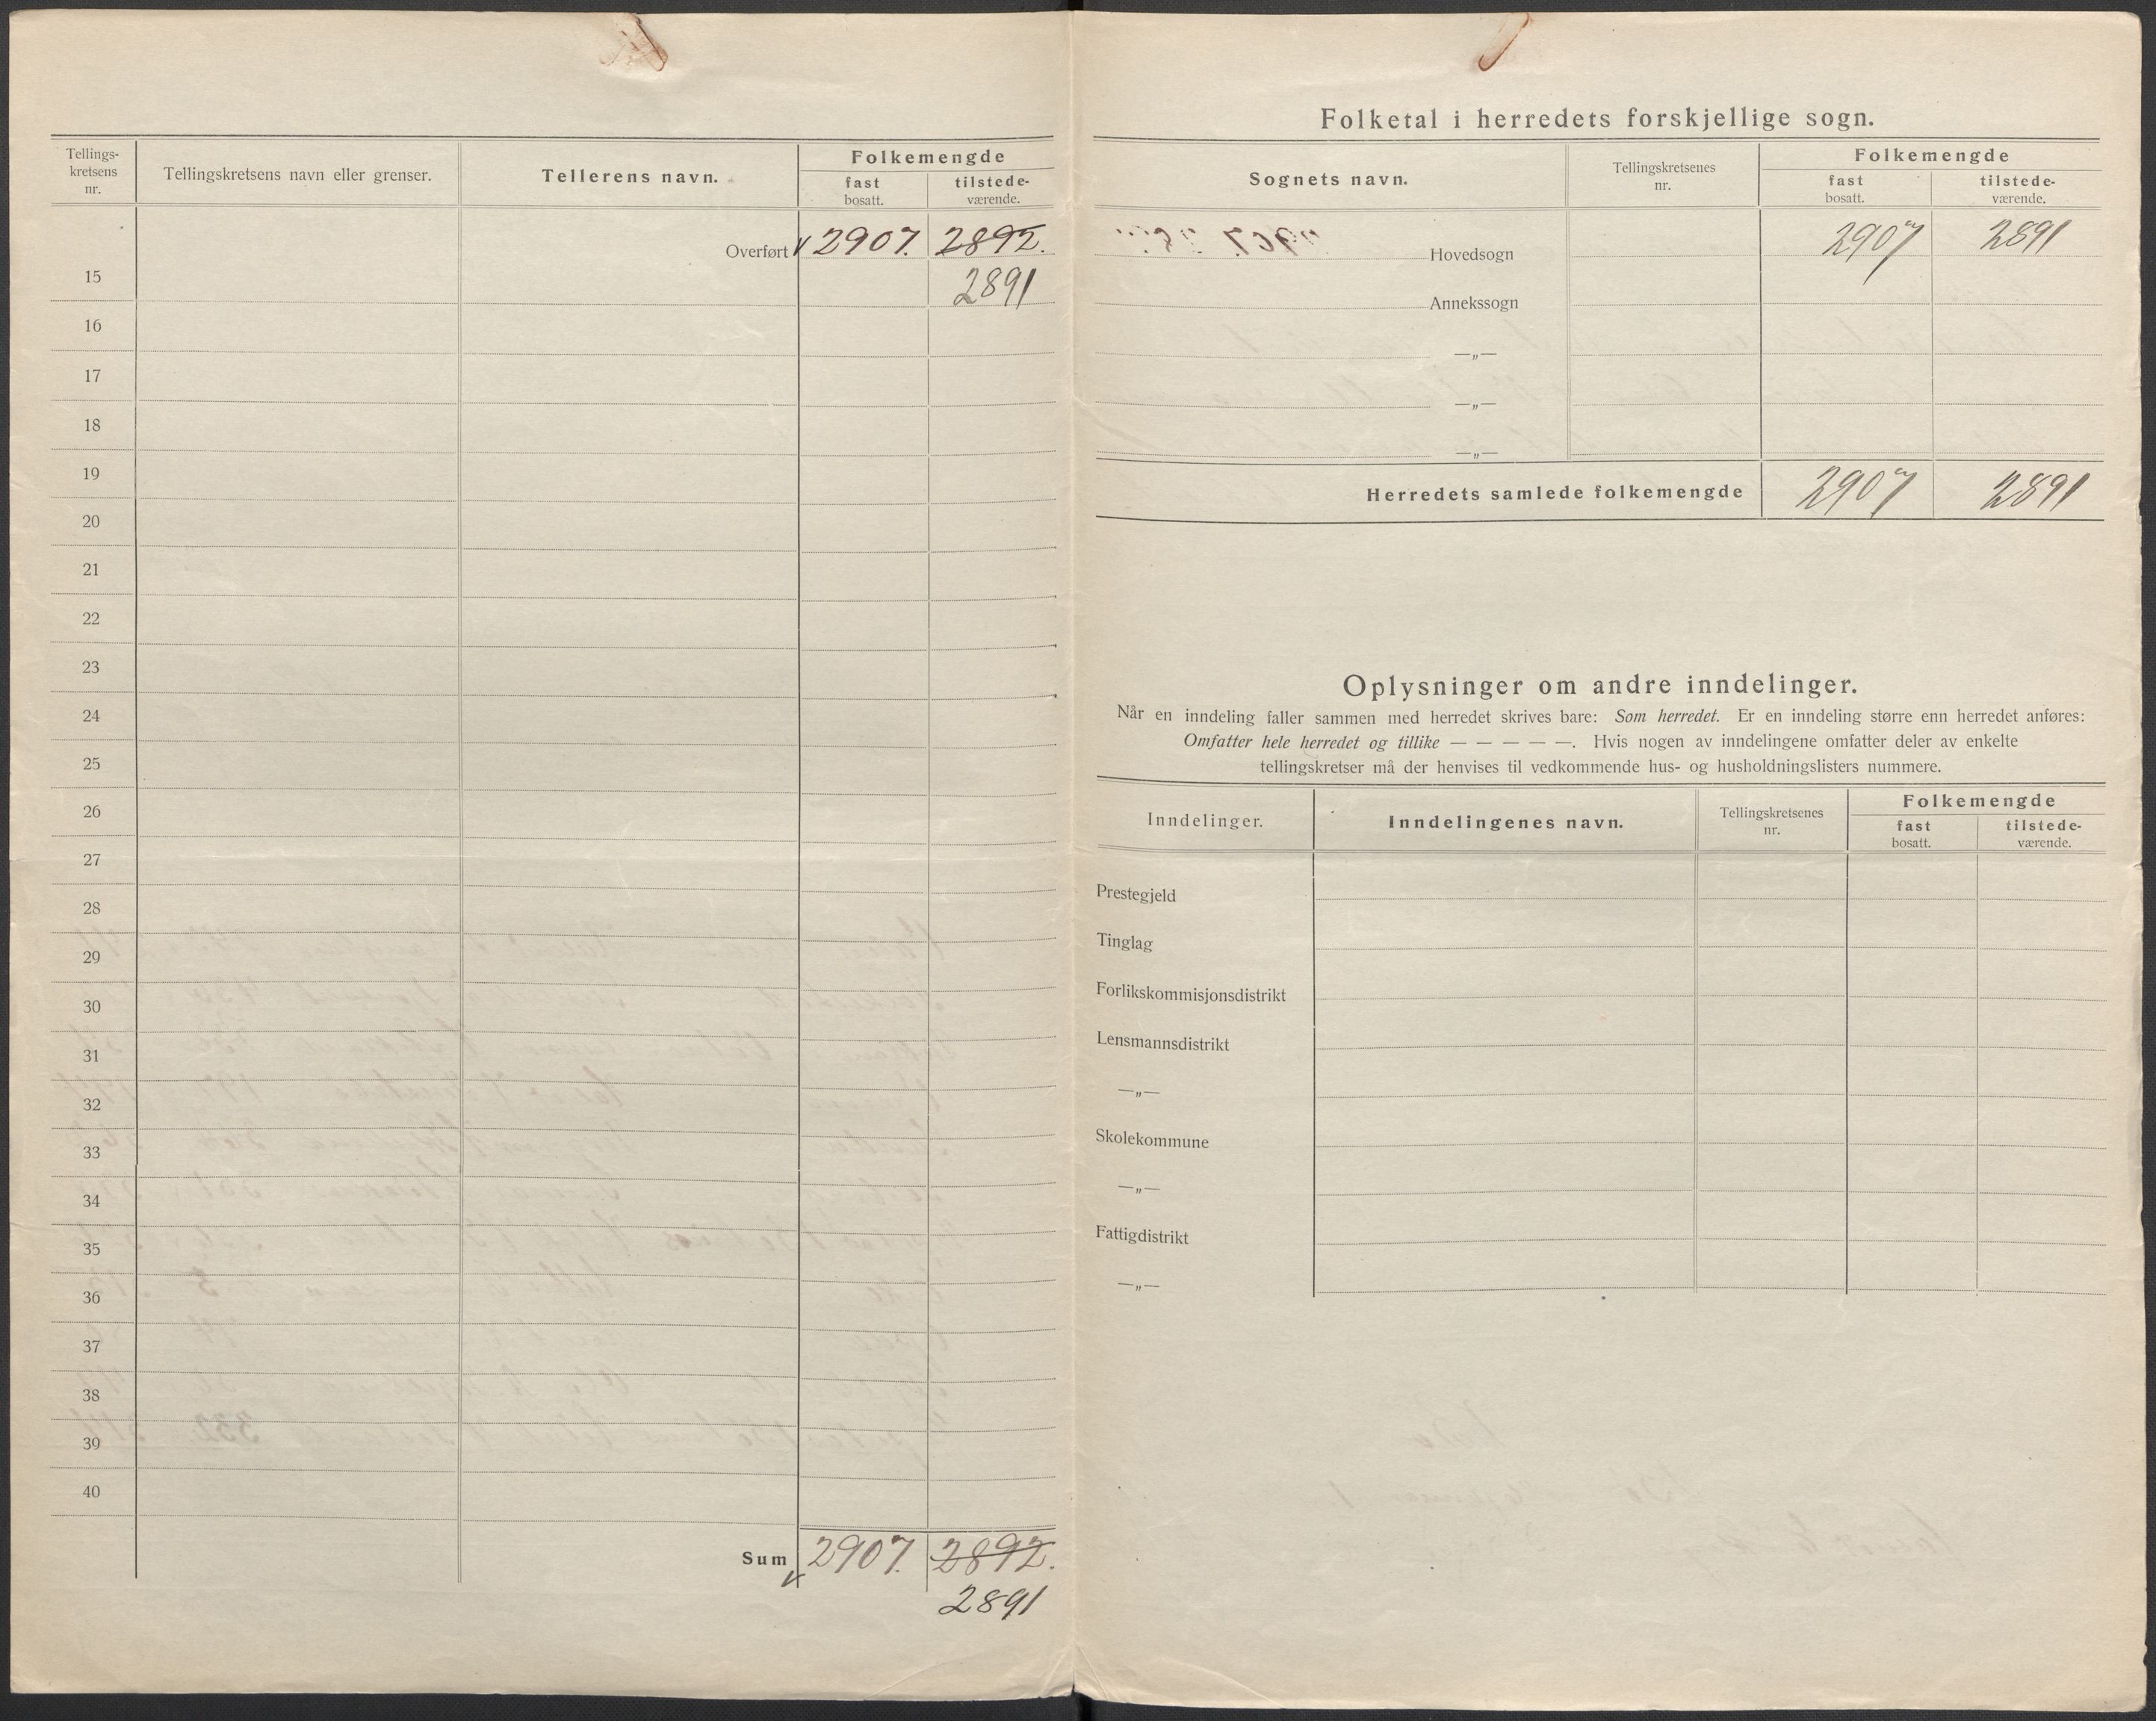 Tellings-
kretsens
nr.
Tellingskretsens navn eller grenser.
Tellerens navn.
Folkemengde
fast
bosatt.
tilstede-
værende.
Overført 2907. 2892.
15 2891
16
17
18
19
20
21
22
23
24
25
26
27
28
29
30
31
32
33
34
35
36
37
38
39
40
Sum 2907. 2892.
2891
Folketal i herredets forskjellige sogn.
Sognets navn.
Tellingskretsenes
nr.
Folkemengde
fast
bosatt.
tilstede-
værende.
Hovedsogn 2907 2891
Annekssogn
—„—
—„—
—„—
Herredets samlede folkemengde 2907 2891
Oplysninger om andre inndelinger.
Når en inndeling faller sammen med herredet skrives bare: Som herredet. Er en inndeling større enn herredet anføres:
Omfatter hele herredet og tillike — — — — —. Hvis nogen av inndelingene omfatter deler av enkelte
tellingskretser må der henvises til vedkommende hus- og husholdningslisters nummere.
Inndelinger.
Inndelingenes navn.
Tellingskretsenes
nr.
Folkemengde
fast
bosatt.
tilstede-
værende.
Prestegjeld
Tinglag
Forlikskommisjonsdistrikt
Lensmannsdistrikt
—„—
Skolekommune
—„—
Fattigdistrikt
—„—